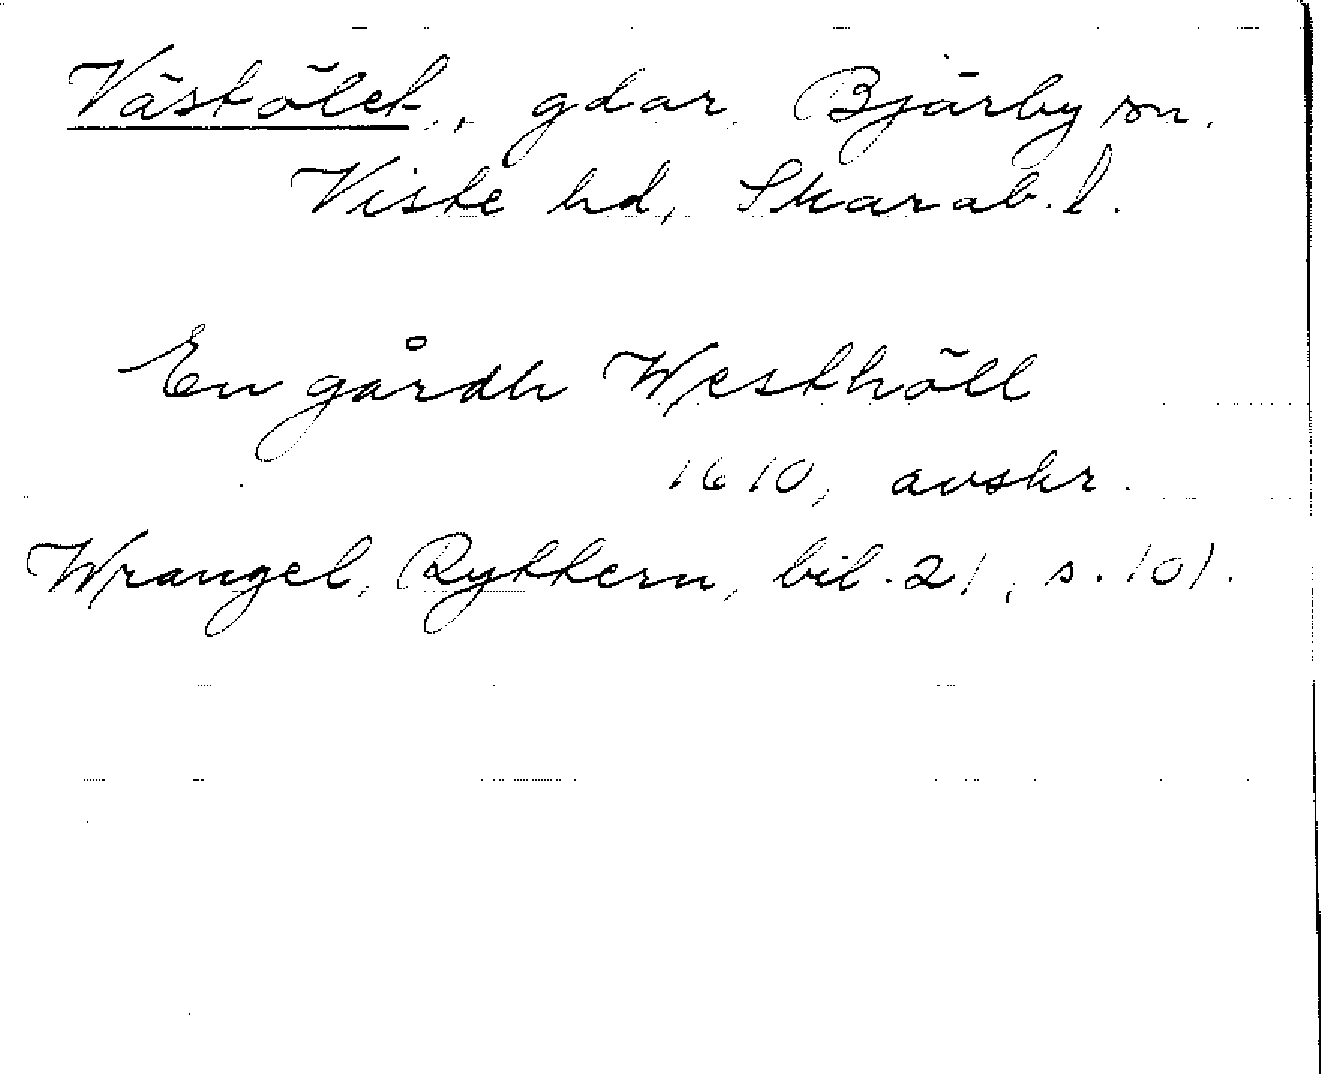 Västölet, gdar, Bjärby sn.
Viste hd, Skarab. l.
En gårdh Westhöll
1610, avskr.
Wrangel, Ryttern, bil. 21, s. 101.